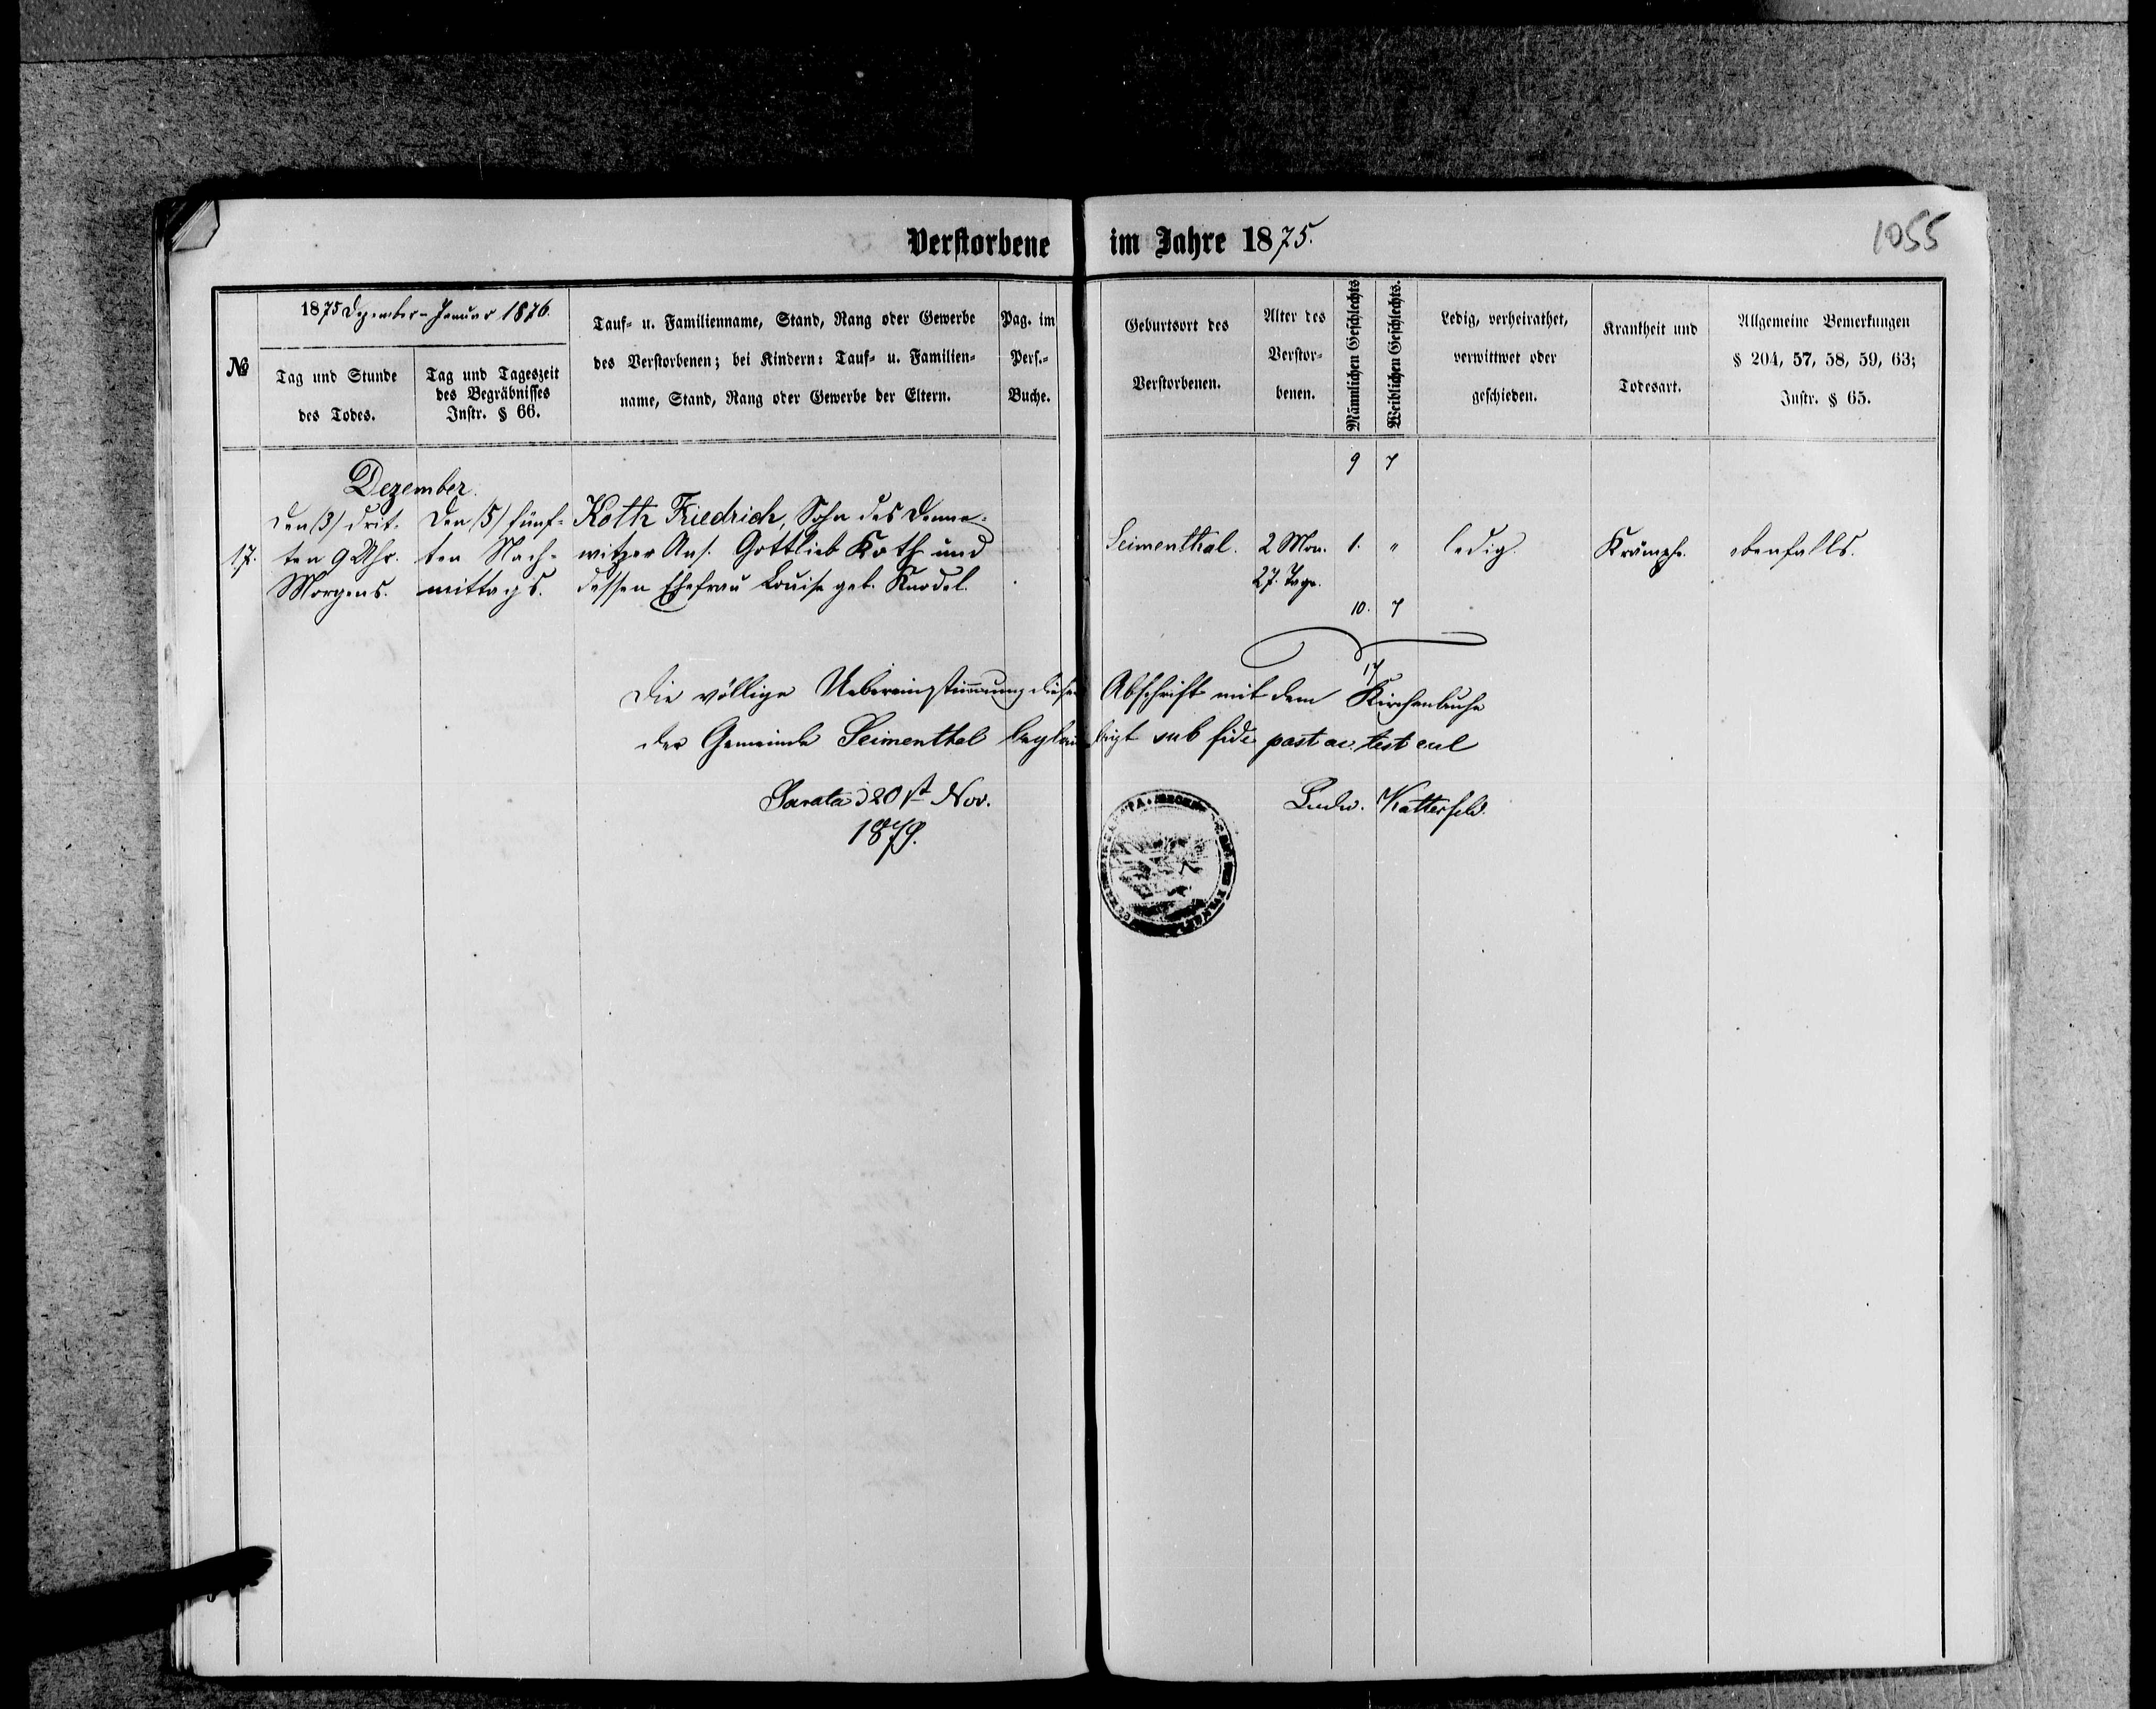 Verstorbene im Jahre 1875.
1055
№
1875 Dezember - Januar 1876.
Tag und Stunde
des Todes.
Tag und Tageszeit
des Begräbnisses
Instr. § 66.
Tauf- u. Familienname, Stand, Rang oder Gewerbe
des Verstorbenen; bei Kindern: Tauf- u. Familien-
name, Stand, Rang oder Gewerbe der Eltern.
Pag. im
Pers.-
Buche.
Geburtsort des
Verstorbenen.
Alter des
Verstor-
benen.
Männlichen Geschlechts
Weiblichen Geschlechts.
Ledig, verheirathet,
verwittwet oder
geschieden.
Krankheit und
Todesart.
Allgemeine Bemerkungen
§ 204, 57, 58, 59, 63;
Instr. § 65.
9 7
Dezember.
17.
den (3) drit-
ten 9 Uhr.
Morgens.
Den (5) fünf-
ten Nach-
mittags.
Koth Friedrich, Sohn des Denne-
witzer Ans. Gottlieb Koth und
dessen Ehefrau Louise geb. Knodel.
Seimenthal.
2 Mon.
27. Tage.
1. "
ledig.
Krämpfe.
ebenfalls.
10. 7
17
Die völlige Uebereinstimmung dieser Abschrift mit dem Kirchenbuche
der Gemeinde Seimenthal beglaubigt sub fide past
Sarata d 20st Nov.
1879.
Ludw. Katterfeld.